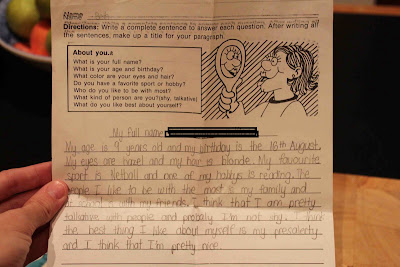 Name
Directions: Write a complete sentence to answer each question. After writing all
the sentences, make up a title for your paragraph.
About you.
What is your full name?
What is your age and birthday?
What color are your eyes and hair?
Do you have a favorite sport or hobby?
Who do you like to be with most?
What kind of person are you?(shy, talkative)
What do you like best about yourself?
My full name
My age is 9 years old and my birthday is the 18th August.
My eyes are hazel and my hair is blonde. My favourite
sport is Netball and one of my hobbys is reading. The
people I like to be with the most is my family and
with my friends. I think that I am pretty
talkative with people and probally I'm not shy. I think
the best thing I like about myself is my
and I think that I'm pretty nice.